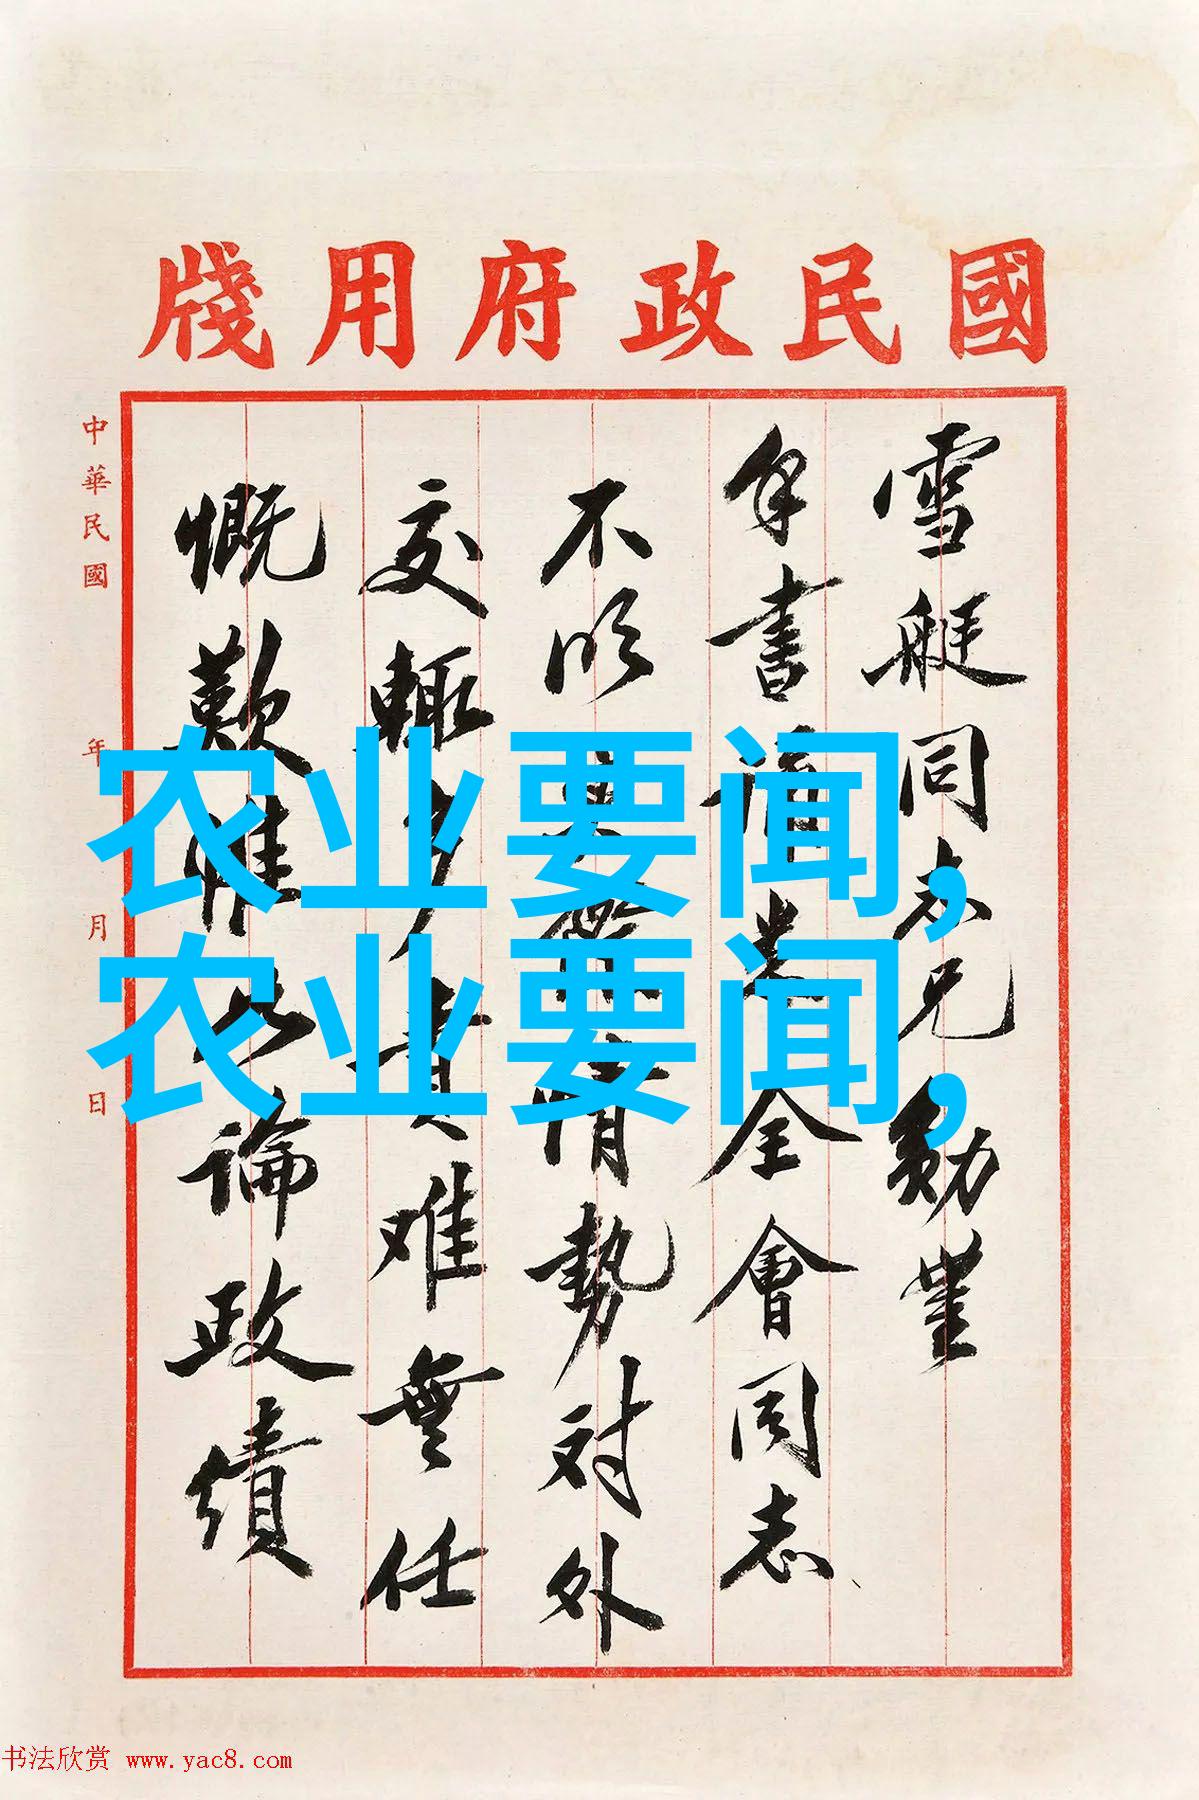 國民政府用牋
雪艇同志兄勛鑒
手書 全會同志
不明 情勢对外
交輒多責难無任
慨歎惟 論政績
中華民國 年 月 日
农业要闻,
农业要闻,
书法欣赏 www.yac8.com